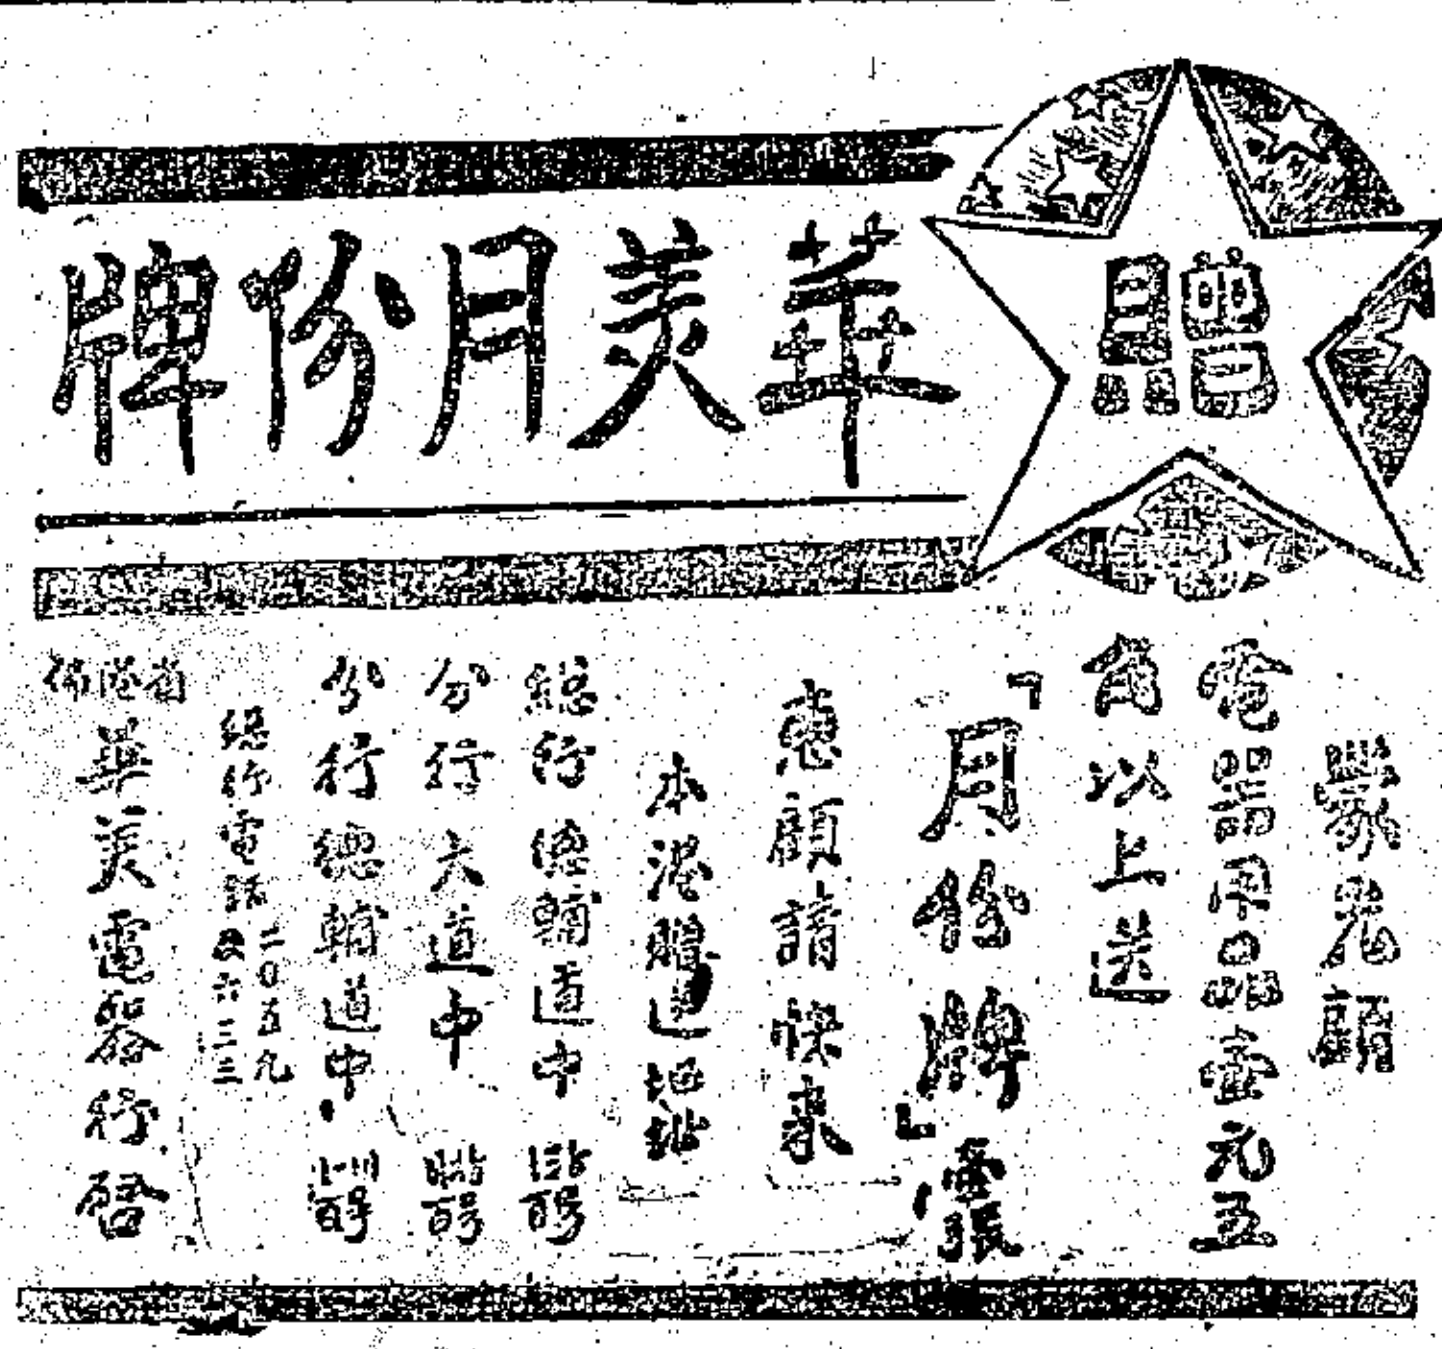 贈
華美月份牌
蒙光顧
電器用品壹元五
角以上送
「月份牌」壹張
惠顧請快來
本港贈送地點
總行 德輔道中
分行 大道中 號
分行 德輔道中 號
總行電話 二〇五九
省港 華美電器行啓